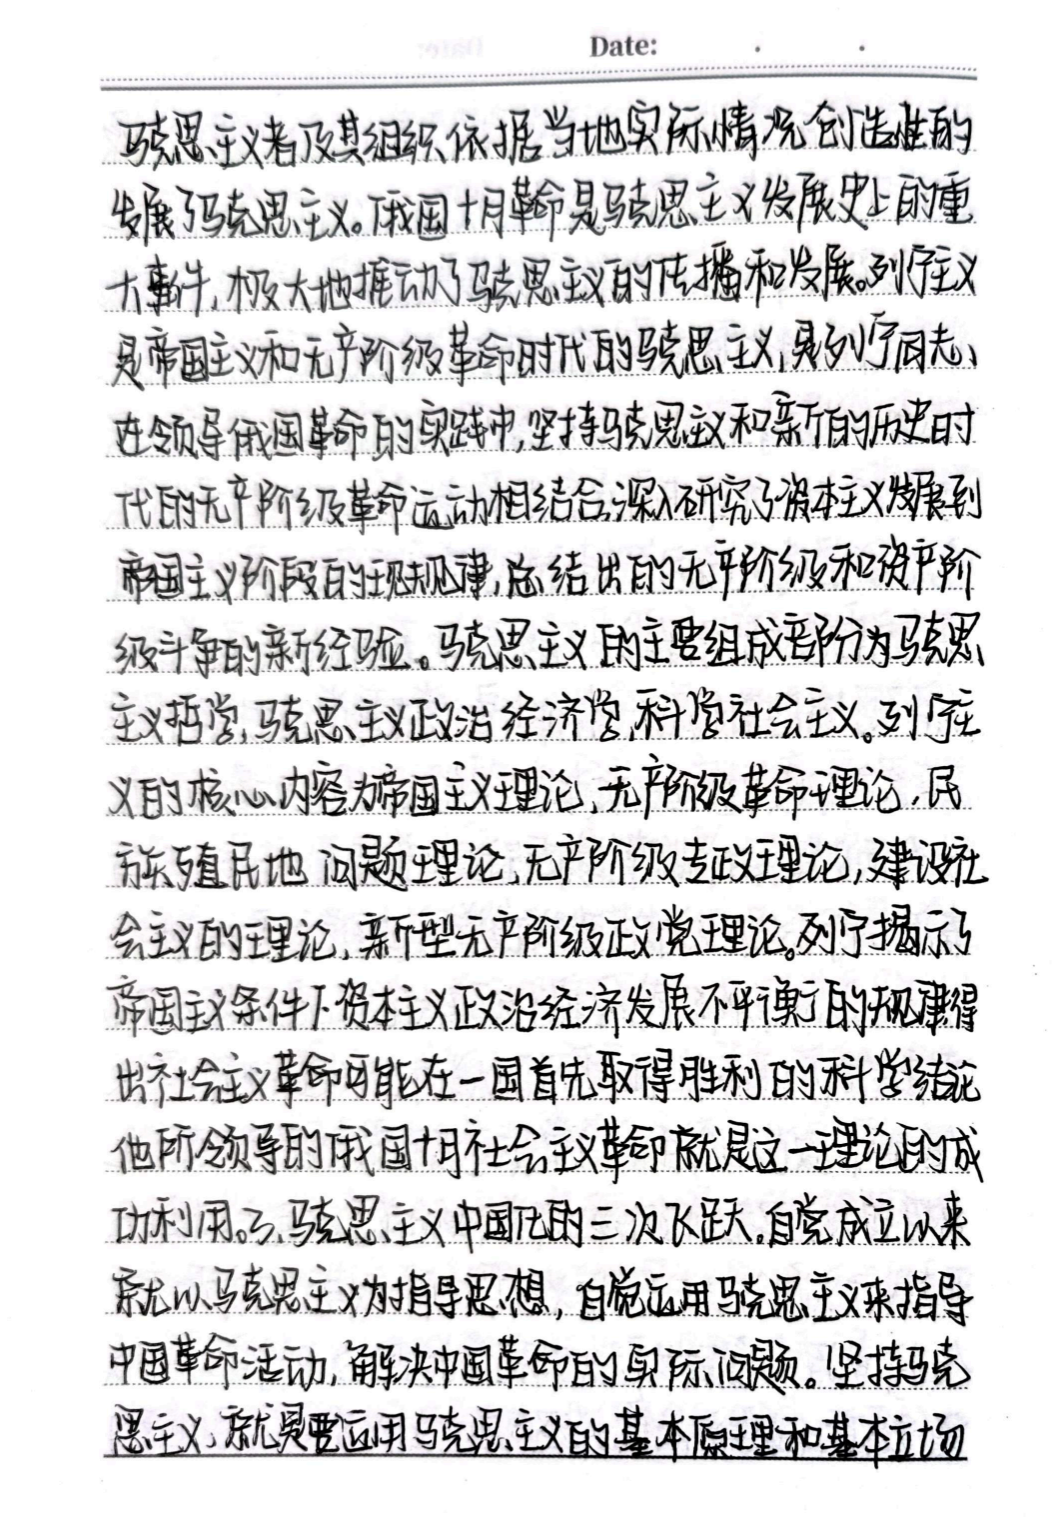 Date:
马克思主义者及其组织依据当地实际情况创造性的
发展了马克思主义。俄国十月革命是马克思主义发展史上的重
大事件,极大地推动了马克思主义的传播和发展。列宁主义
是帝国主义和无产阶级革命时代的马克思主义,是列宁同志、
在领导俄国革命的实践中,坚持马克思主义和新的历史时
代的无产阶级革命运动相结合,深入研究了资本主义发展到
帝国主义阶段的现规律,总结出的无产阶级和资产阶
级斗争的新经验。马克思主义的主要组成部分为马克思
主义哲学,马克思主义政治经济学,科学社会主义。列宁主
义的核心内容为帝国主义理论,无产阶级革命理论,民
族殖民地问题理论,无产阶级专政理论,建设社
会主义的理论,新型无产阶级政党理论。列宁揭示了
帝国主义条件下资本主义政治经济发展不平衡的规律得
出社会主义革命可能在一国首先取得胜利的科学结论
他所领导的俄国十月社会主义革命就是这一理论的成
功利用。3、马克思主义中国化的三次飞跃。自党成立以来
就以马克思主义为指导思想,自觉运用马克思主义来指导
中国革命活动,解决中国革命的实际问题。坚持马克
思主义,就是要运用马克思主义的基本原理和基本立场